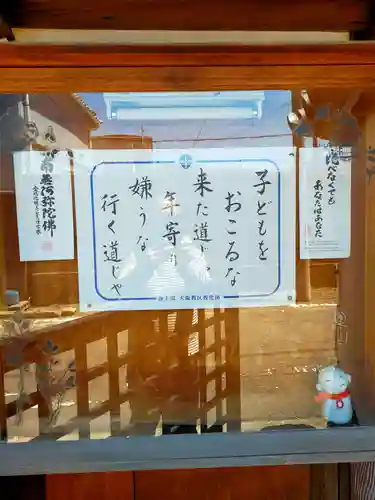 比べなくても
あなたはあなた
子どもを
おこるな
来た道じゃ
年寄り
嫌うな
行く道じゃ
浄土宗 大阪教区教宣師会
南無阿弥陀佛